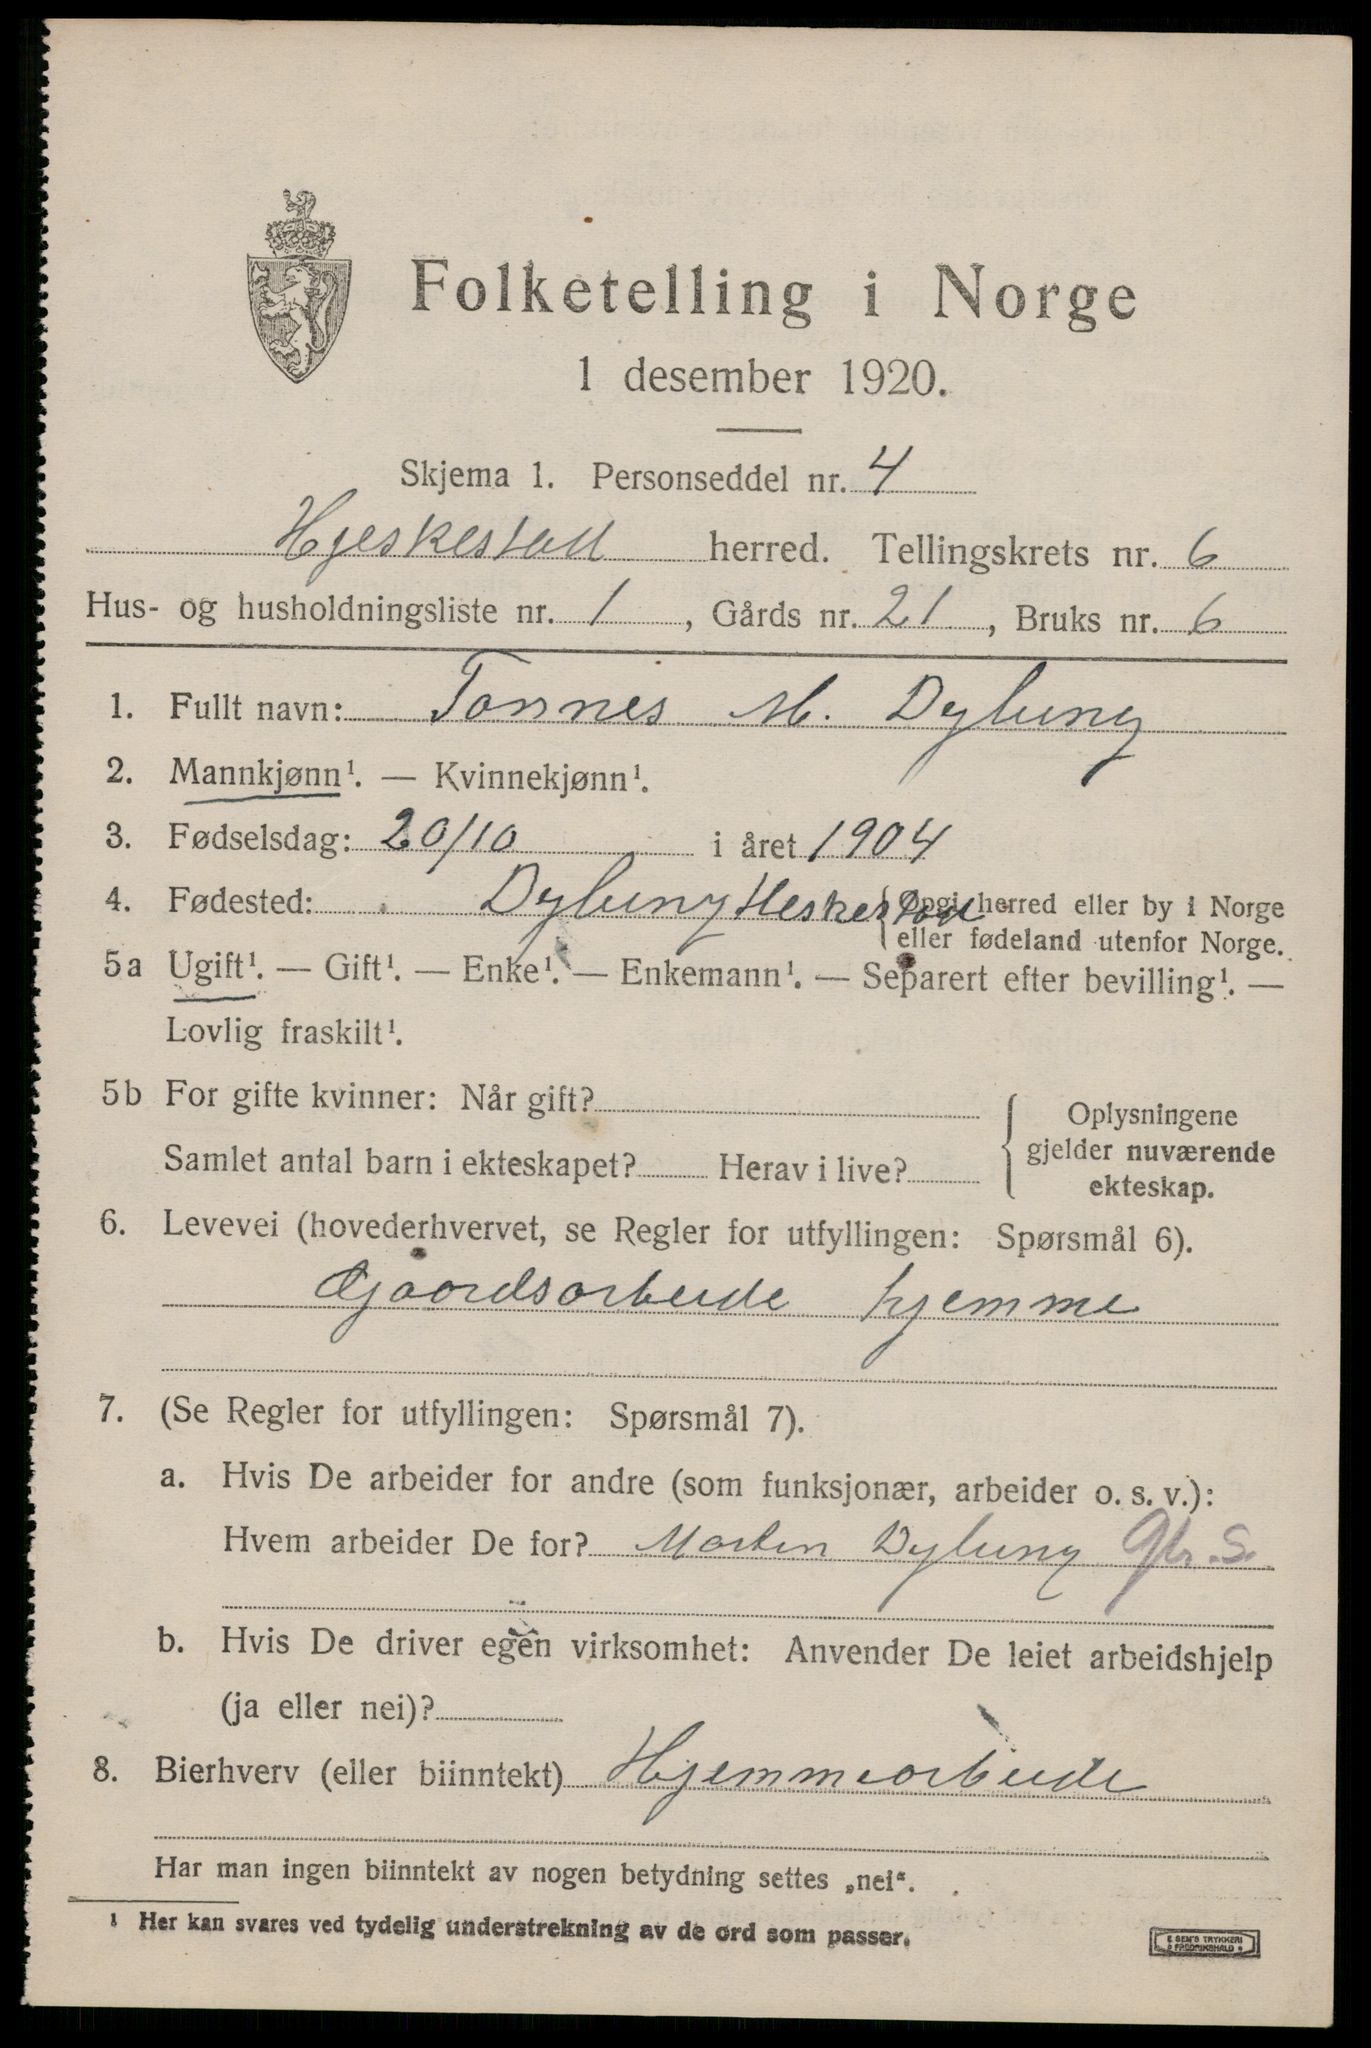 Folketelling i Norge
1 desember 1920.
Skjema 1. Personseddel nr. 4
Hjeskestad herred. Tellingskrets nr. 6
Hus- og husholdningsliste nr. 1, Gårds nr. 21, Bruks nr. 6
1. Fullt navn: Tønnes M. Dylung
2. Mannkjønn¹. — Kvinnekjønn¹.
3. Fødselsdag: 20/10 i året 1904
4. Fødested: Dylung Heskestad {Opgi herred eller by i Norge
eller fødeland utenfor Norge.
5a Ugift¹. — Gift¹. — Enke¹. — Enkemann¹. — Separert efter bevilling¹. —
Lovlig fraskilt¹.
5b For gifte kvinner: Når gift?
Samlet antal barn i ekteskapet? Herav i live?
Oplysningene
gjelder nuværende
ekteskap.
6. Levevei (hovederhvervet, se Regler for utfyllingen: Spørsmål 6).
Gaardsarbeide hjemme
7. (Se Regler for utfyllingen: Spørsmål 7).
a. Hvis De arbeider for andre (som funksjonær, arbeider o. s. v.):
Hvem arbeider De for? Morten Dylung Gbr. S.
b. Hvis De driver egen virksomhet: Anvender De leiet arbeidshjelp
(ja eller nei)?
8. Bierhverv (eller biinntekt) Hjemmearbeide
Har man ingen biinntekt av nogen betydning settes „nei“.
¹ Her kan svares ved tydelig understrekning av de ord som passer.
E SEM'S TRYKKERI
FREDRIKSHALD